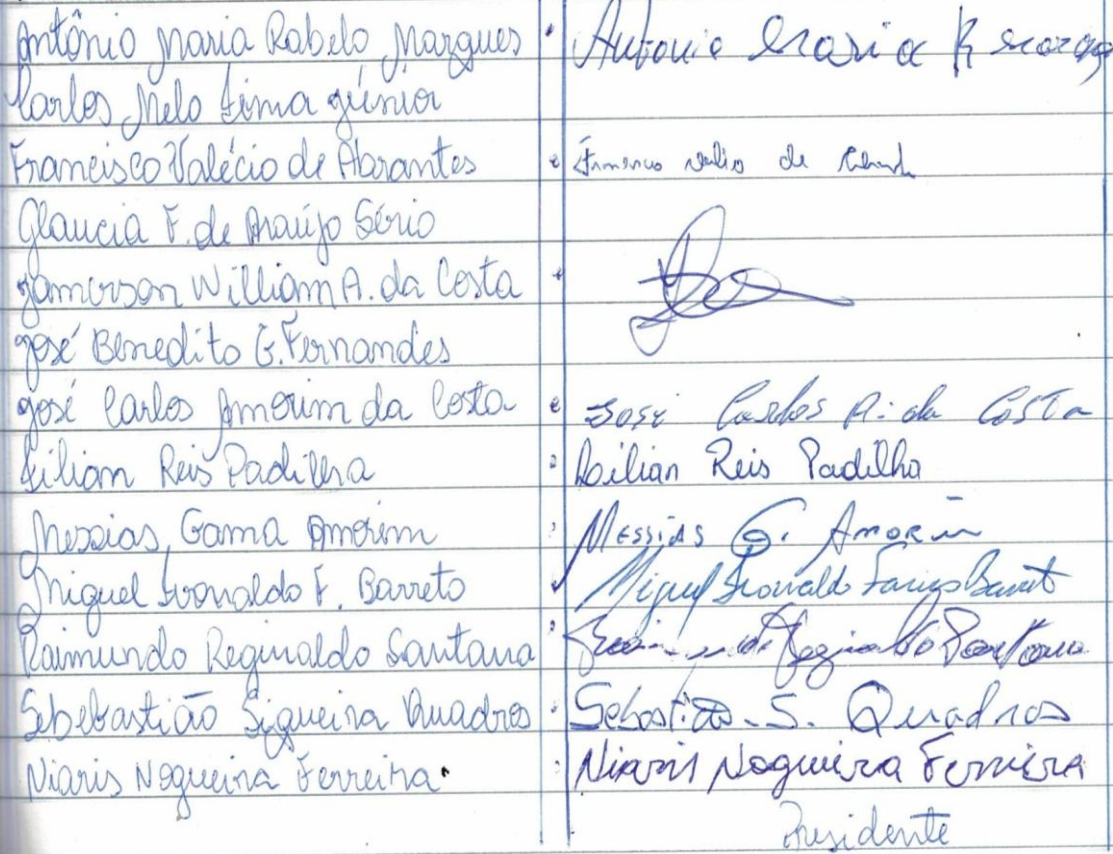 Antônio Maria Rabelo Marques Antonio Maria R
Carlos Melo Lima Júnior
Francisco Valécio de Abrantes de
Glaucia F. de Araújo Sério
Jamerson William A. da Costa
José Benedito G. Fernandes
José Carlos Amorim da Costa José Carlos A. da Costa
Lilian Reis Padilha Lilian Reis Padilha
Messias Gama Amorim Messias G. Amorim
Miguel F. Barreto Miguel Farias
Raimundo Reginaldo Santana Reginaldo Santana
Sebebastião Siqueira Quadros Sebastião S. Quadros
Niaris Nogueira Ferreira Niaris Nogueira Ferreira
Presidente